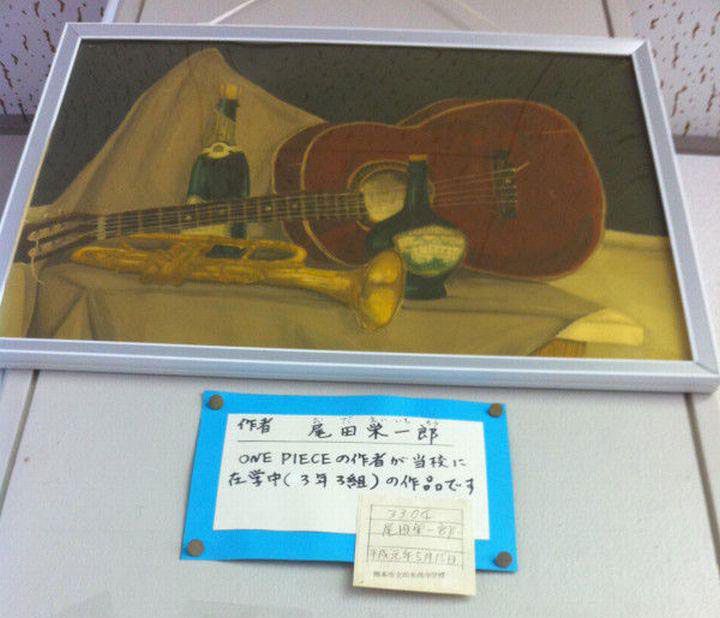 おだえいいちろう
作者 尾田栄一郎
ONE PIECEの作者が当校に
在学中(3年3組)の作品です
3304
尾田栄一郎
平成元年5月15日